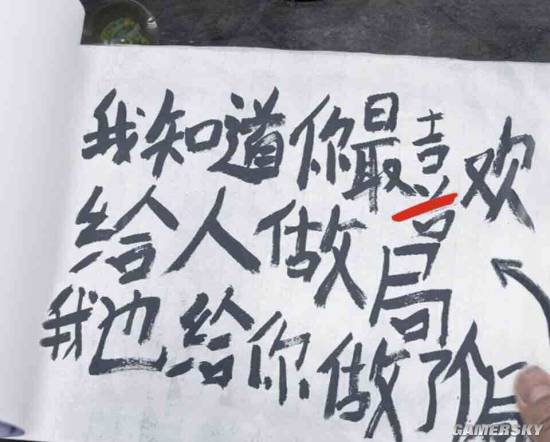 我知道你最喜欢
给人做局
我也给你做了个
GAMERSKY